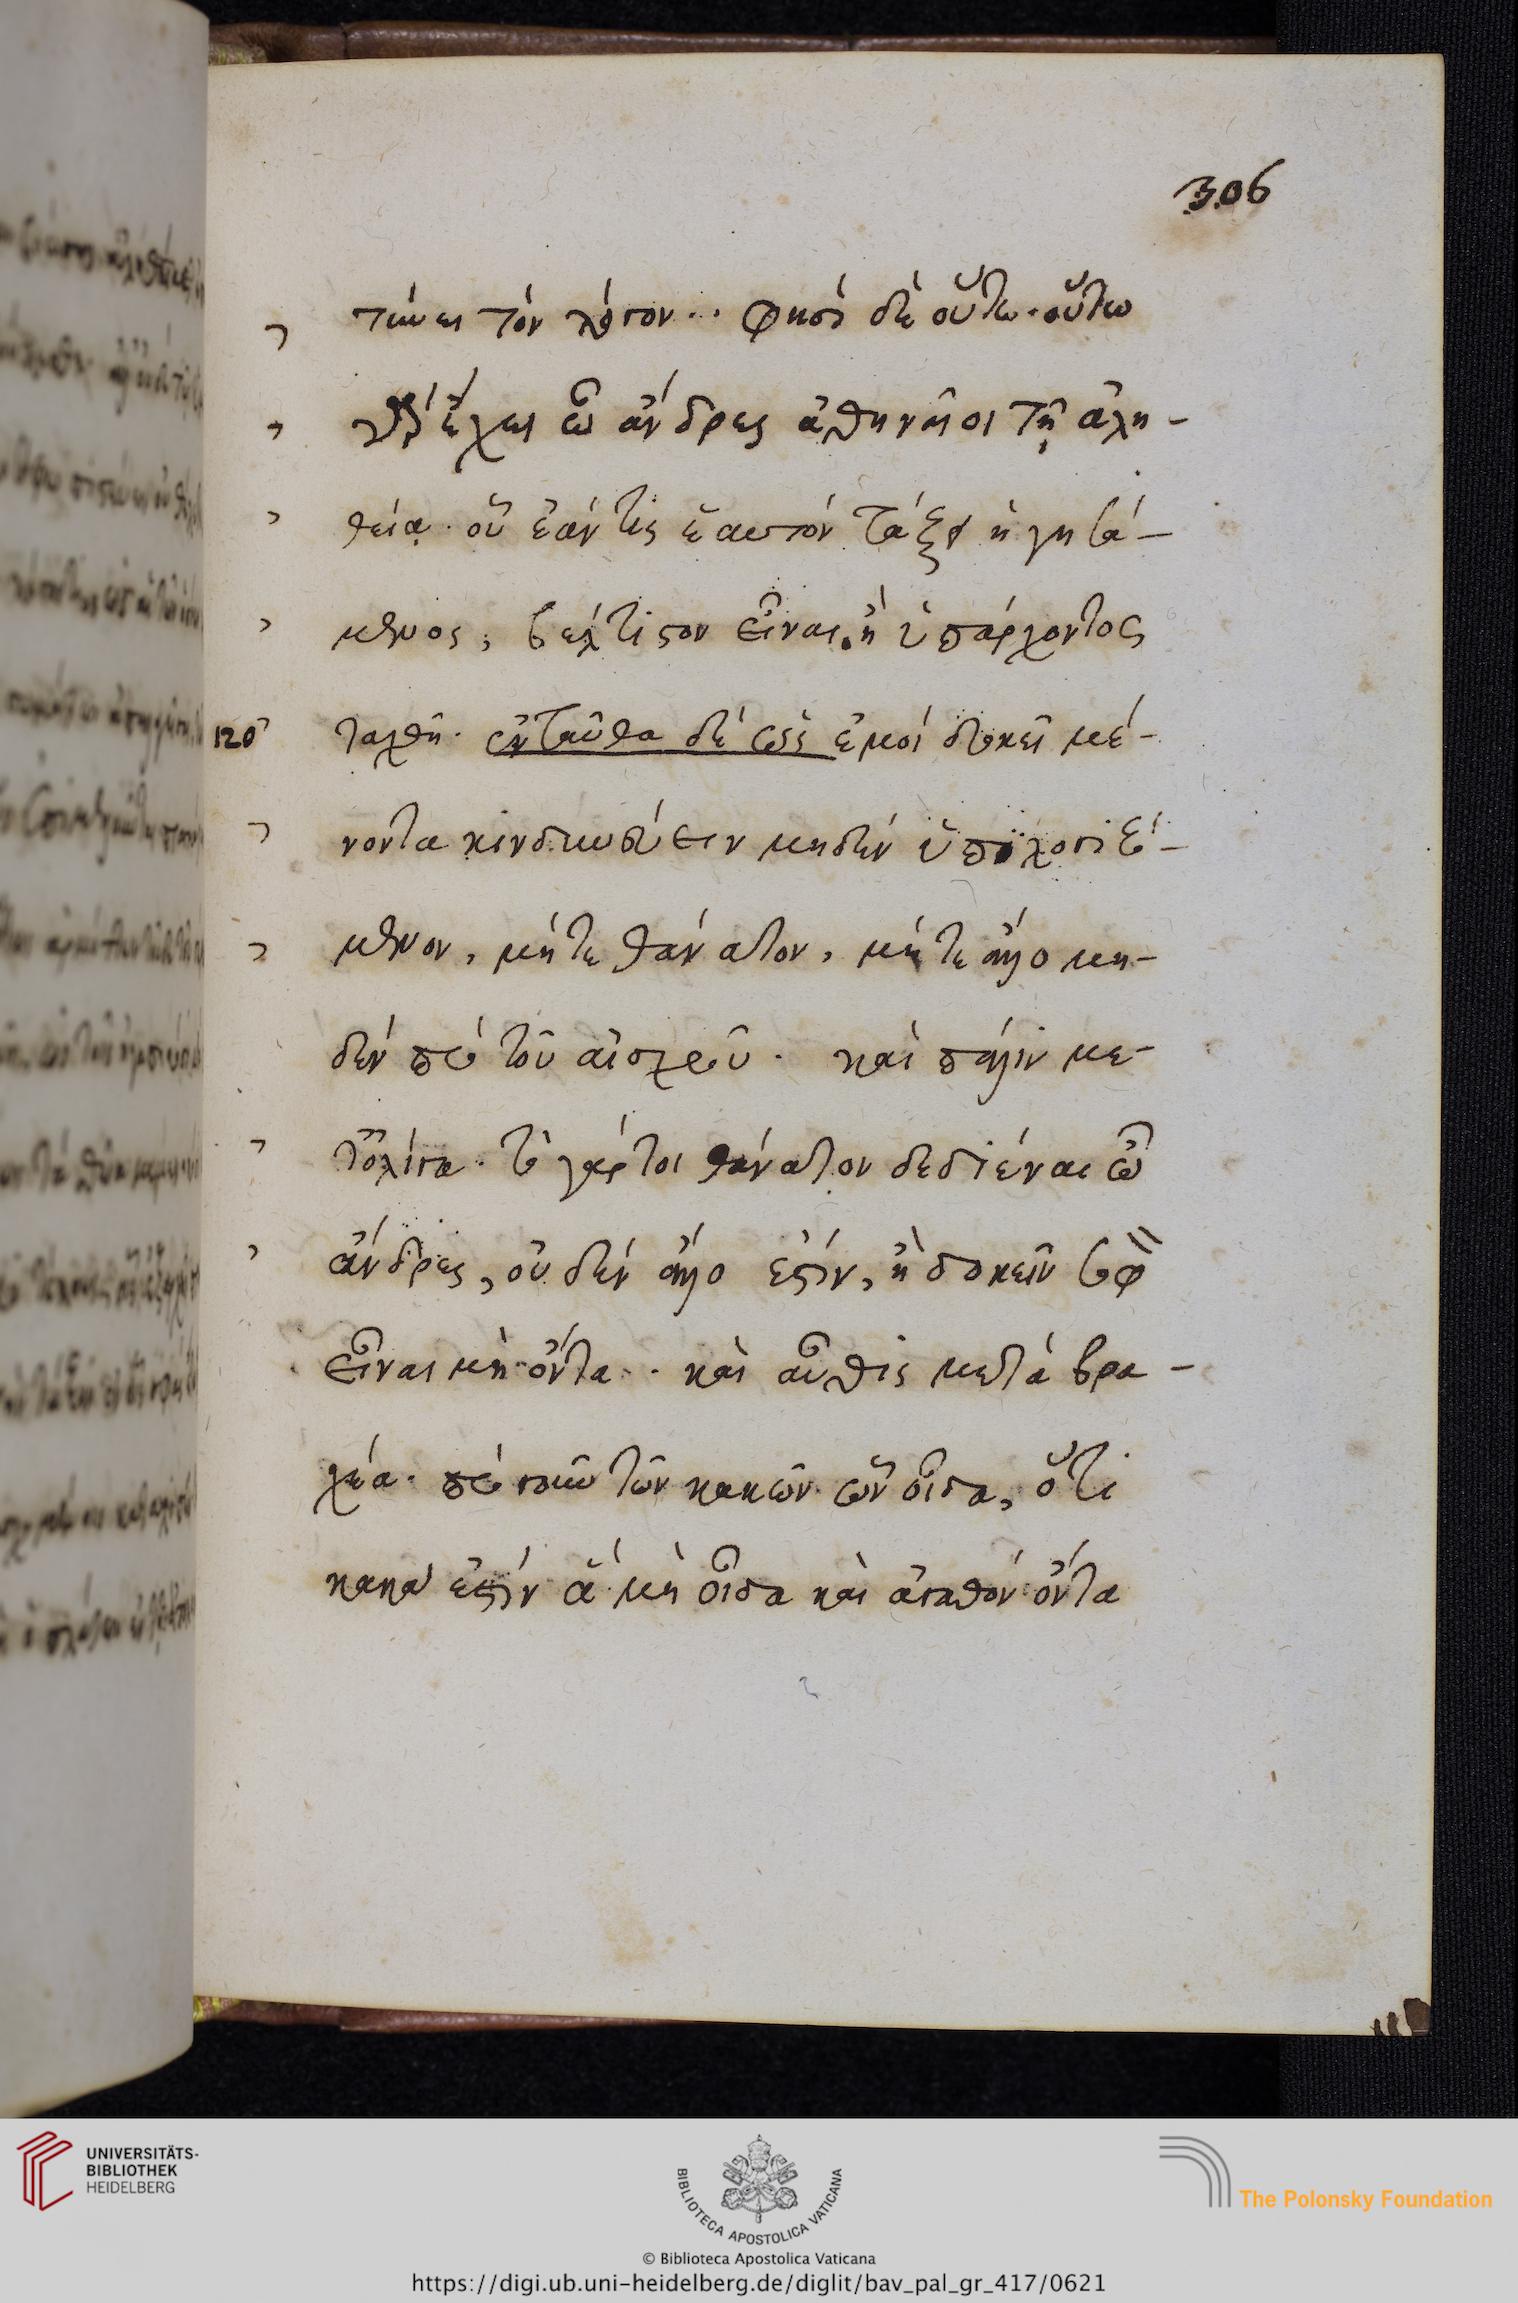 306
τείνει τὸν λόγον·· φησὶ δὲ οὕτω· οὕτω
γὰρ ἔχει ὦ ἄνδρες ἀθηναῖοι τῇ ἀλη-
θείᾳ· οὗ ἐάν τις ἑαυτὸν τάξῃ ἡγησά-
μενος, βέλτιστον εἶναι ἢ ὑπάρχοντος
120 ταχθῇ· ἐνταῦθα δεῖ ὡς ἐμοὶ δοκεῖ μέ-
νοντα κινδυνεύειν μηδὲν ὑπολογιζό-
μενον, μήτε θάνατον, μήτε ἄλλο μη-
δὲν πρὸ τοῦ αἰσχροῦ· καὶ πάλιν με-
τ' ὀλίγα· τὸ γάρ τοι θάνατον δεδιέναι ὦ
ἄνδρες, οὐδὲν ἄλλο ἐστὶν, ἢ δοκεῖν σοφὸν
εἶναι μὴ ὄντα·· καὶ αὖθις μετὰ βρα-
χέα· πρὸ οὖν τῶν κακῶν ὧν οἶδα, ὅτι
κακά ἐστιν ἃ μὴ οἶδα καὶ ἀγαθὸν ὄντα
UNIVERSITÄTS-
BIBLIOTHEK
HEIDELBERG
BIBLIOTECA APOSTOLICA VATICANA
The Polonsky Foundation
© Biblioteca Apostolica Vaticana
https://digi.ub.uni-heidelberg.de/diglit/bav_pal_gr_417/0621